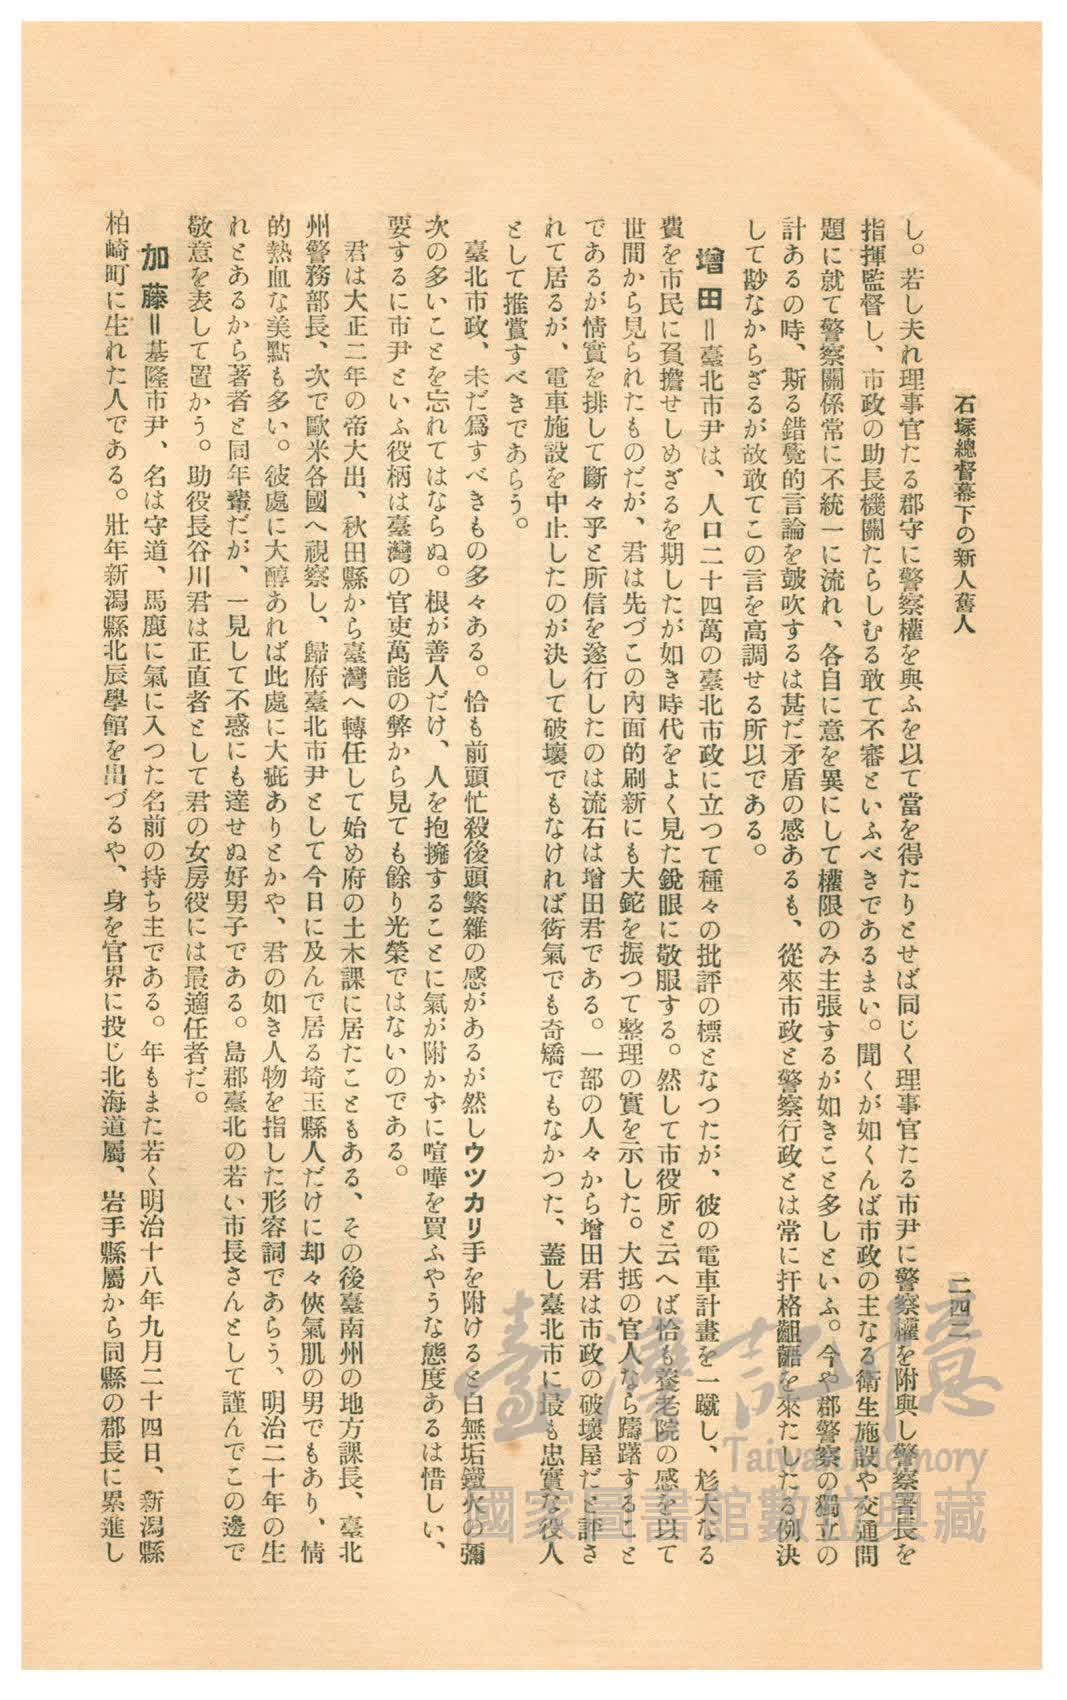 石塚總督幕下の新人舊人
二四二
し。若し夫れ理事官たる郡守に警察權を與ふを以て當を得たりとせば同じく理事官たる市尹に警察權を附與し警察署長を
指揮監督し、市政の助長機關たらしむる敢て不審といふべきであるまい。聞くが如くんば市政の主なる衛生施設や交通問
題に就て警察關係常に不統一に流れ、各自に意を異にして權限のみ主張するが如きこと多しといふ。今や郡警察の獨立の
計あるの時、斯る錯覺的言論を皷吹するは甚だ矛盾の感あるも、從來市政と警察行政とは常に扞格齟齬を來たしたる例決
して尠なからざるが故敢てこの言を高調せる所以である。
增田=臺北市尹は、人口二十四萬の臺北市政に立つて種々の批評の標となつたが、彼の電車計畫を一蹴し、尨大なる
費を市民に負擔せしめざるを期したが如き時代をよく見た銳眼に敬服する。然して市役所と云へば恰も養老院の感を以て
世間から見られたものだが、君は先づこの內面的刷新にも大鉈を振つて整理の實を示した。大抵の官人なら躊躇すること
であるが情實を排して斷々乎と所信を遂行したのは流石は增田君である。一部の人々から增田君は市政の破壞屋だと評さ
れて居るが、電車施設を中止したのが決して破壞でもなければ衒氣でも奇矯でもなかつた、蓋し臺北市に最も忠實な役人
として推賞すべきであらう。
臺北市政、未だ爲すべきもの多々ある。恰も前頭忙殺後頭繁雜の感があるが然しウツカリ手を附けると白無垢鐵火の彌
次の多いことを忘れてはならぬ。根が善人だけ、人を抱擁することに氣が附かずに喧嘩を買ふやうな態度あるは惜しい、
要するに市尹といふ役柄は臺灣の官吏萬能の弊から見ても餘り光榮ではないのである。
君は大正二年の帝大出、秋田縣から臺灣へ轉任して始め府の土木課に居たこともある、その後臺南州の地方課長、臺北
州警務部長、次で歐米各國へ視察し、歸府臺北市尹として今日に及んで居る埼玉縣人だけに却々俠氣肌の男でもあり、情
的熱血な美點も多い。彼處に大醇あれば此處に大疵ありとかや、君の如き人物を指した形容詞であらう、明治二十年の生
れとあるから著者と同年輩だが、一見して不惑にも達せぬ好男子である。島郡臺北の若い市長さんとして謹んでこの邊で
敬意を表して置かう。助役長谷川君は正直者として君の女房役には最適任者だ。
加藤=基隆市尹、名は守道、馬鹿に氣に入つた名前の持ち主である。年もまた若く明治十八年九月二十四日、新潟縣
柏崎町に生れた人である。壯年新潟縣北辰學館を出づるや、身を官界に投じ北海道屬、岩手縣屬から同縣の郡長に累進し
臺灣記憶
Taiwan Memory
國家圖書館數位典藏